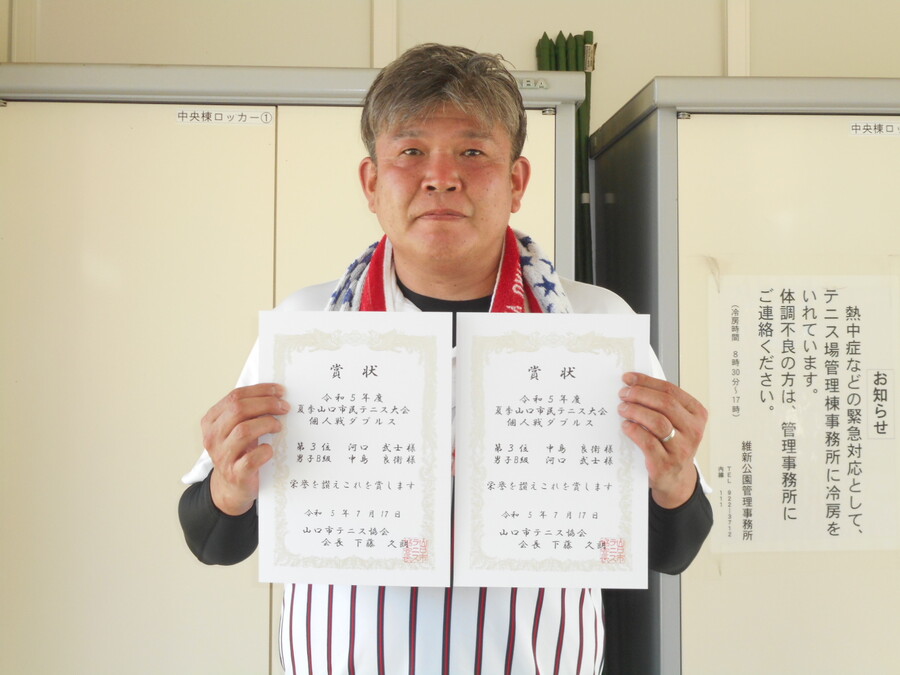 中央棟ロッカー①
中央棟ロッ
賞状
令和5年度
夏季山口市民テニス大会
個人戦ダブルス
第3位 河口 武士様
男子B級 中島 良衛様
栄誉を讃えこれを賞します
令和 5年7月17日
山口市テニス協会
会長 下藤 久
賞状
令和5年度
夏季山口市民テニス大会
個人戦ダブルス
第3位 中島 良衛様
男子B級 河口 武士様
栄誉を讃えこれを賞します
令和 5年7月17日
山口市テニス協会
会長 下藤 久
お知らせ
熱中症などの緊急対応として、
テニス場管理棟事務所に冷房を
いれています。
体調不良の方は、管理事務所に
ご連絡ください。
(冷房時間 8時30分~17時)
維新公園管理事務所
TEL 922-2712
内線 111